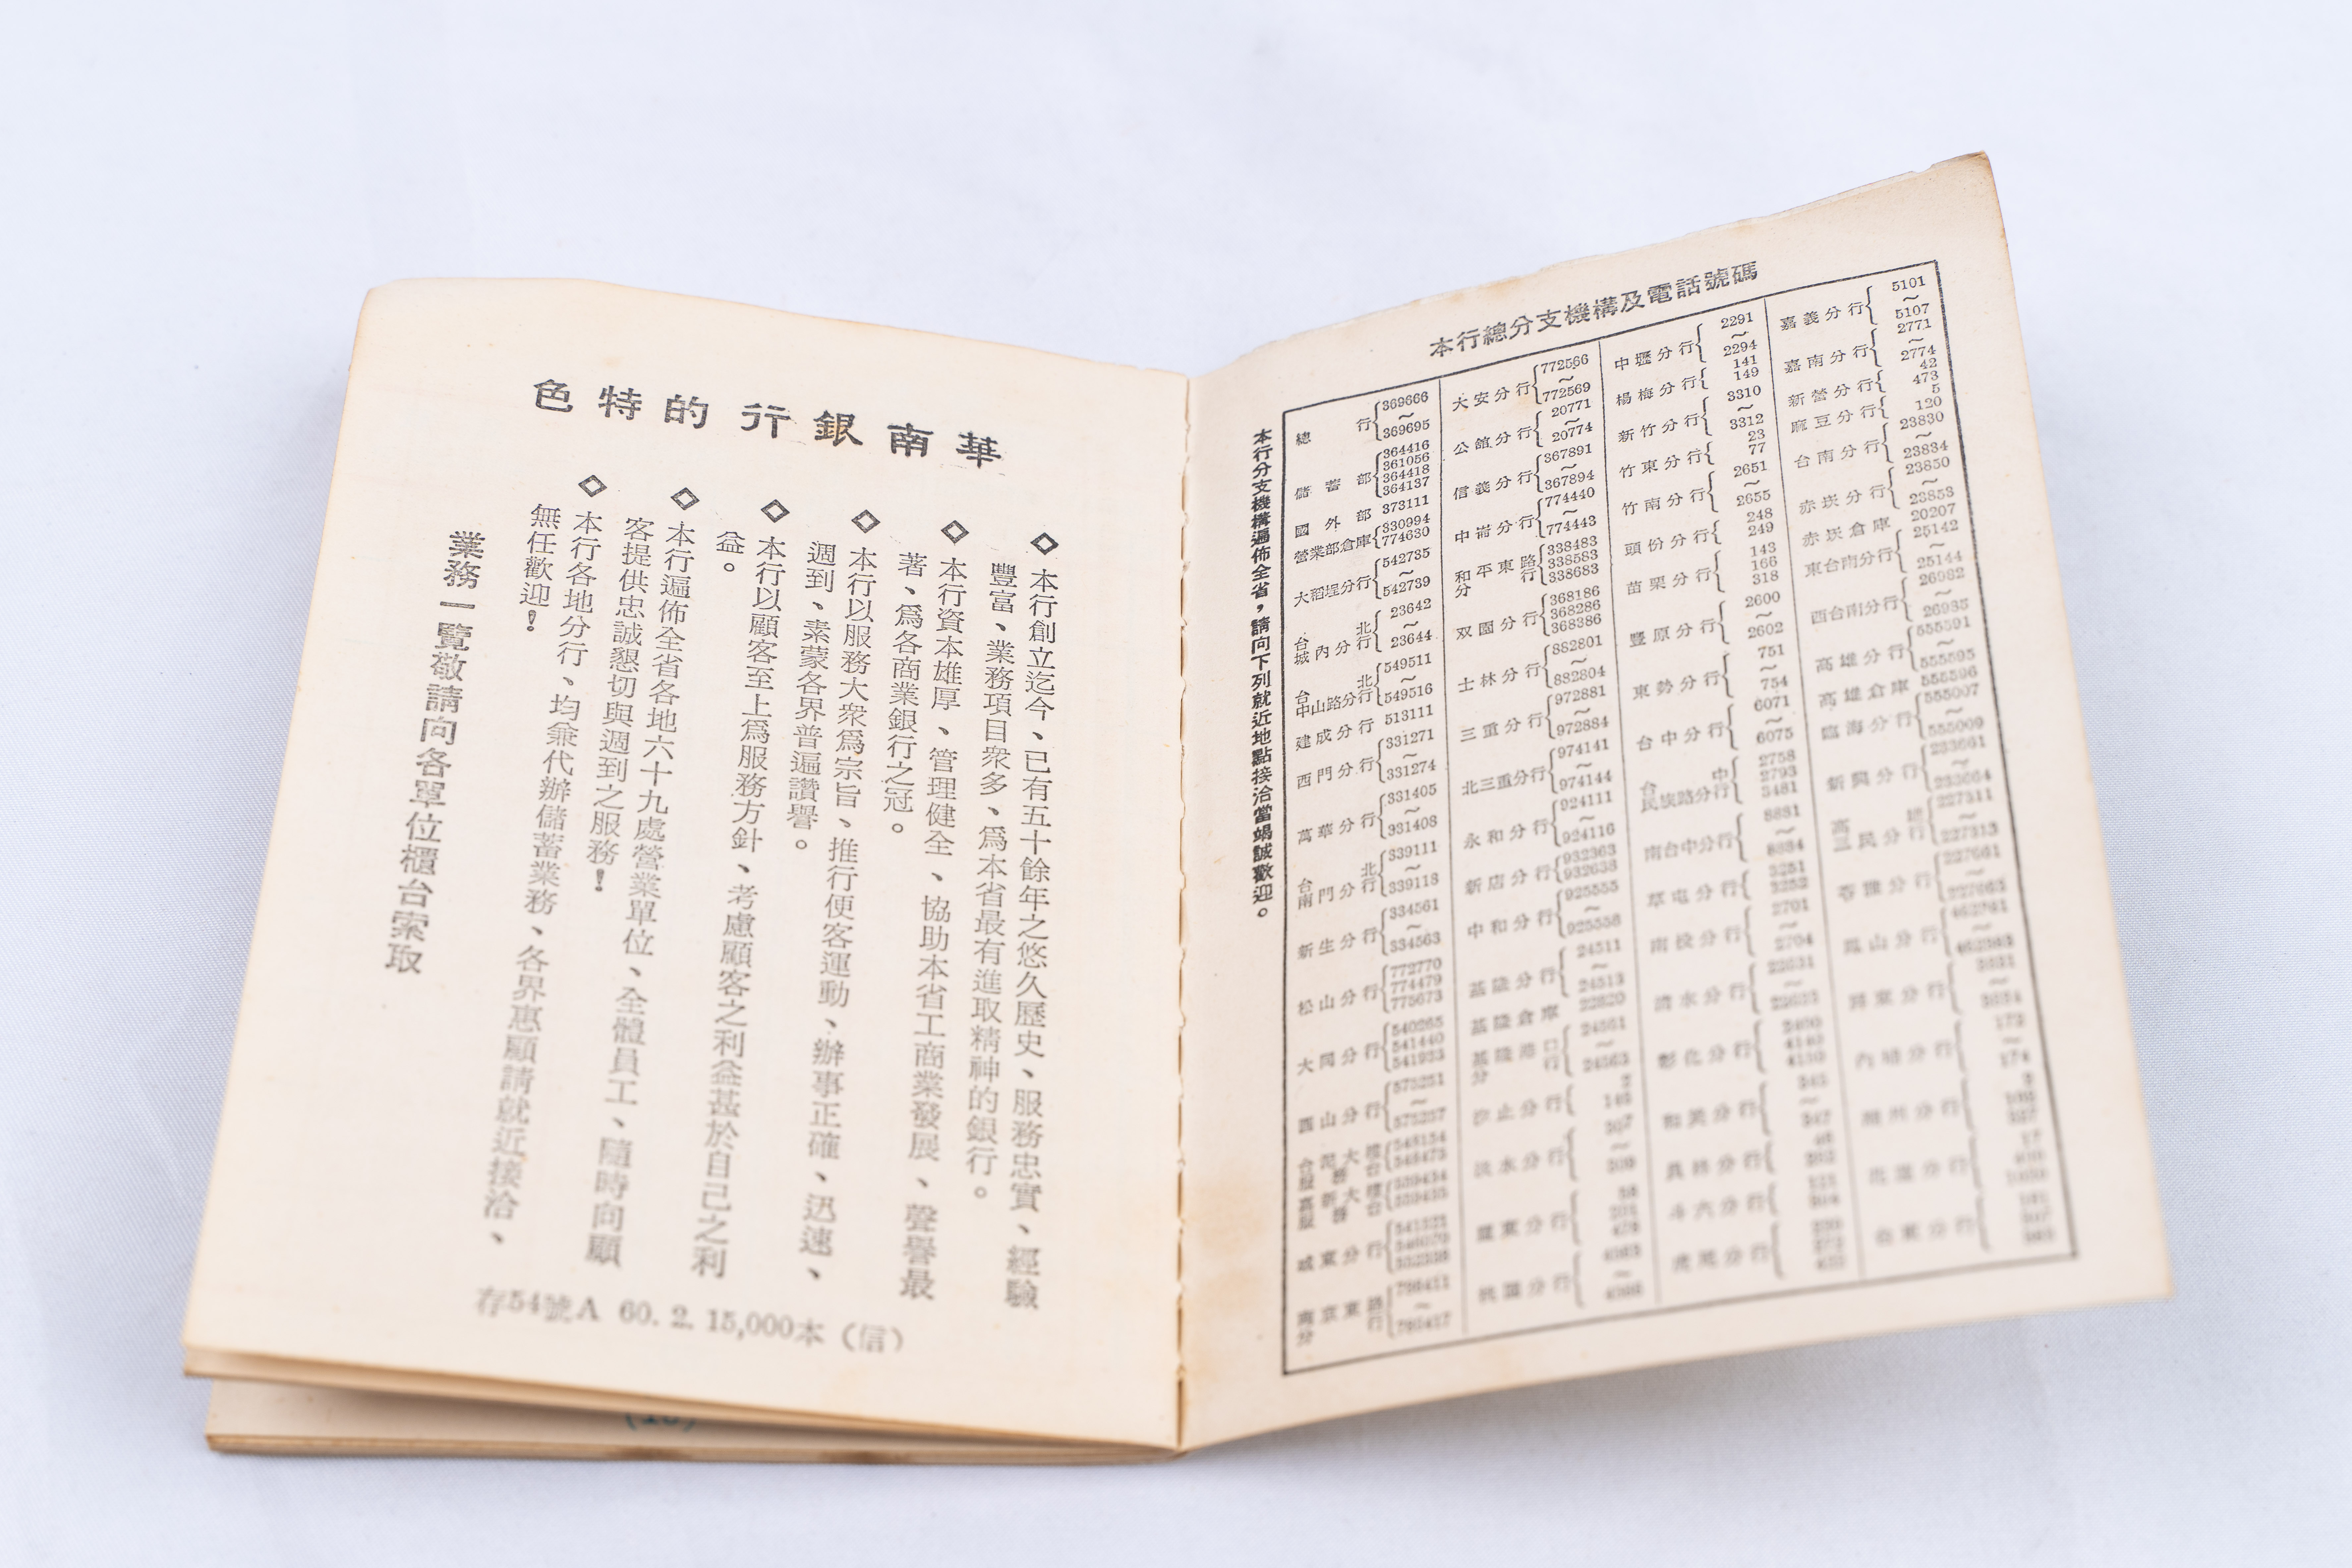 華南銀行的特色
◇本行創立迄今、已有五十餘年之悠久歷史、服務忠實、經驗
豐富、業務項目衆多、爲本省最有進取精神的銀行。
◇本行資本雄厚、管理健全、協助本省工商業發展、聲譽最
著、爲各商業銀行之冠。
◇本行以服務大衆爲宗旨、推行便客運動、辦事正確、迅速、
週到、素蒙各界普遍讚譽。
◇本行以顧客至上爲服務方針、考慮顧客之利益甚於自己之利
益。
◇本行遍佈全省各地六十九處營業單位、全體員工、隨時向顧
客提供忠誠懇切與週到之服務!
◇本行各地分行、均兼代辦儲蓄業務、各界惠顧請就近接洽、
無任歡迎!
業務一覽敬請向各單位櫃台索取
存54號A 60. 2. 15,000本 (信)
本行總分支機構及電話號碼
本行分支機構遍佈全省，請向下列就近地點接洽當竭誠歡迎。
總行 369666～369695
儲蓄部 364416 361056 364418 364137
國外部 373111
營業部倉庫 330994 774630
大稻埕分行 542735～542739
台北城內分行 23642～23644
台北中山路分行 549511～549516
建成分行 513111
西門分行 331271～331274
萬華分行 331405～331408
台北南門分行 339111～339118
新生分行 334561～334563
松山分行 772770 774479 775673
大同分行 540265 541440 541933
西山分行 575251～575257
城東分行
南京東路分行
大安分行 772566～772569
公館分行 20771～20774
信義分行 367891～367894
中崙分行 774440～774443
和平東路分行 338483 338583 338683
双園分行 368186 368286 368386
士林分行 882801～882804
三重分行 972881～972884
北三重分行 974141～974144
永和分行 924111～924116
新店分行 932363 932638
中和分行 925555～925558
基隆分行 24511～24513
基隆倉庫 22820
基隆港口分行 24561～24563
汐止分行
淡水分行
羅東分行
桃園分行
中壢分行 2291～2294
楊梅分行 141 149
新竹分行 3310～3312
竹東分行 23 77
竹南分行 2651～2655
頭份分行 248 249
苗栗分行 143 166 318
豐原分行 2600～2602
東勢分行 751～754
台中分行 6071～6075
台中民族路分行 2758 2793 3481
南台中分行 8881～8884
草屯分行 3251 3252
南投分行 2701～2704
清水分行
彰化分行
和美分行
員林分行
斗六分行
虎尾分行
嘉義分行 5101～5107
嘉南分行 2771～2774
新營分行 42 473
麻豆分行 5 120
台南分行 23830～23834
赤崁分行 23850～23853
赤崁倉庫 20207
東台南分行 25142～25144
西台南分行 26982～26985
高雄分行 555591～555595
高雄倉庫 555596
臨海分行 555007～555009
新興分行
高雄三民分行
苓雅分行
鳳山分行
屏東分行
內埔分行
潮州分行
花蓮分行
台東分行